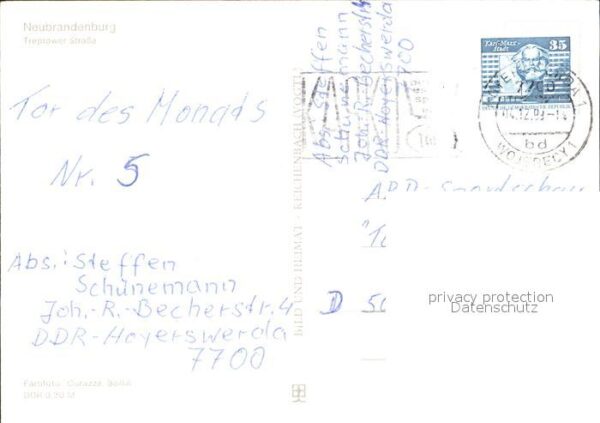 Neubrandenburg
Treptower Straße
Tor des Monats
Nr. 5
Abs.: Steffen
Schünemann
Joh.-R.-Becherstr. 4
DDR-Hoyerswerda
7700
Farbfoto: Darazza, Berlin
DDR 0,20 M
BILD UND HEIMAT REICHENBACH
Abs. Steffen
Schünemann
Joh.-R.-Becherstr. 4
DDR Hoyerswerda
7700
Karl-Marx-
Stadt
35
7700
bd
WOJERECY 1
ARD-Sportschau
D
privacy protection
Datenschutz